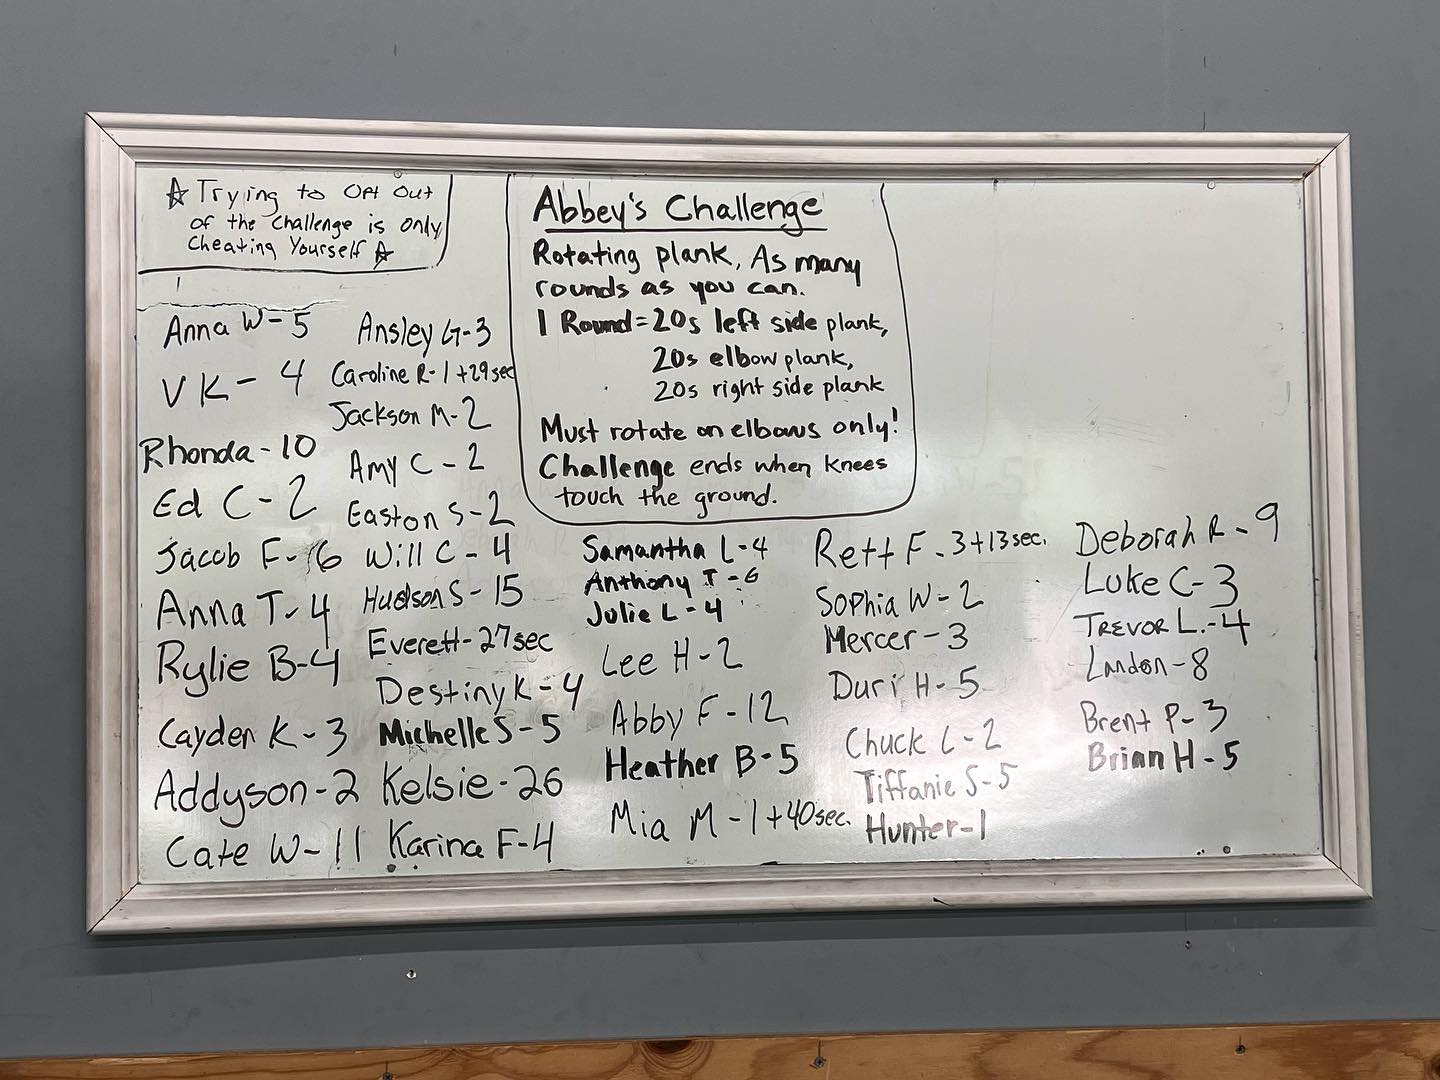 ☆ Trying to Opt Out
of the Challenge is only
Cheating Yourself ☆
Abbey's Challenge
Rotating plank, As many
rounds as you can.
1 Round = 20s left side plank,
20s elbow plank,
20s right side plank
Must rotate on elbows only!
Challenge ends when knees
touch the ground.
Anna W - 5
VK - 4
Rhonda - 10
Ed C - 2
Jacob F - 16
Anna T - 4
Rylie B - 4
Cayden K - 3
Addyson - 2
Cate W - 11
Ansley G - 3
Caroline R - 1 + 29sec
Jackson M - 2
Amy C - 2
Easton S - 2
Will C - 4
Hudson S - 15
Everett - 27sec
Destiny K - 4
Michelle S - 5
Kelsie - 26
Karina F - 4
Samantha L - 4
Anthony T - 6
Julie L - 4
Lee H - 2
Abby F - 12
Heather B - 5
Mia M - 1 + 40sec.
Rett F. 3 + 13sec.
Sophia W - 2
Mercer - 3
Duri H - 5
Chuck L - 2
Tiffanie S - 5
Hunter - 1
Deborah R - 9
Luke C - 3
TREVOR L. - 4
Landon - 8
Brent P - 3
Brian H - 5